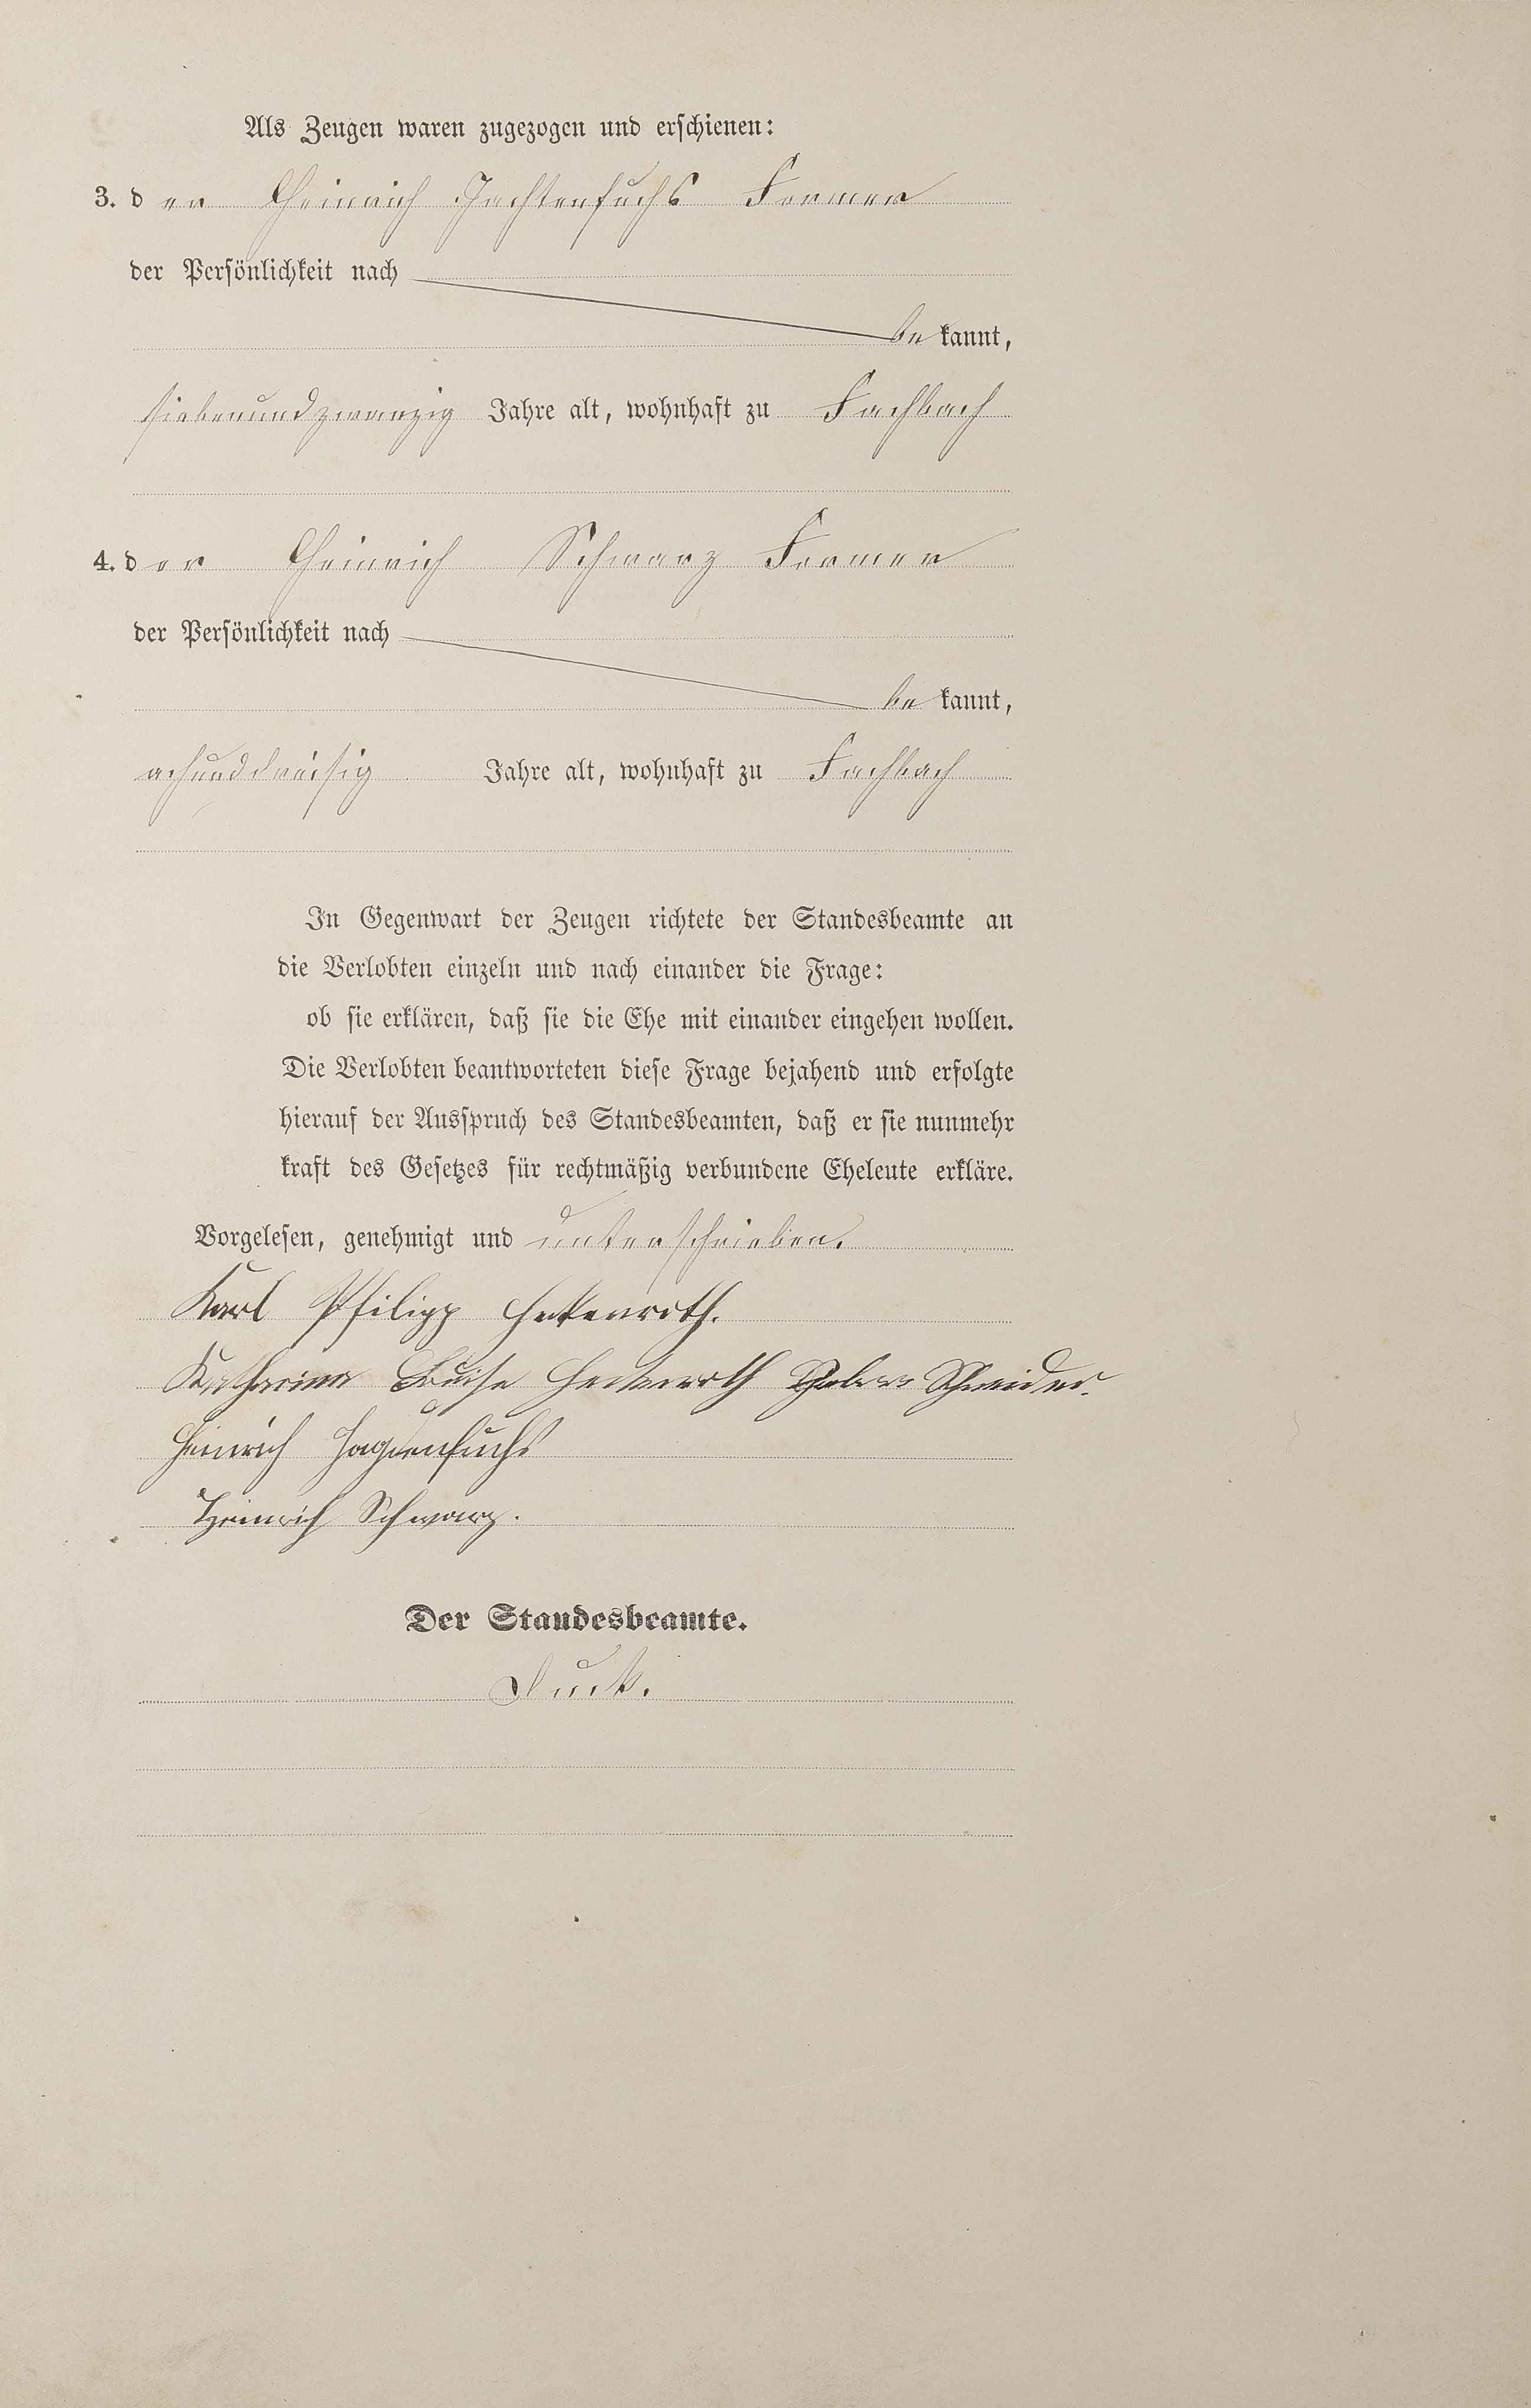 Als Zeugen waren zugezogen und erschienen:
3. der Heinrich Jachtenfuchs Former
der Persönlichkeit nach
be kannt,
siebenundzwanzig Jahre alt, wohnhaft zu Fachbach
4. der Heinrich Schwarz Former
der Persönlichkeit nach
be kannt,
achunddreisig Jahre alt, wohnhaft zu Fachbach
In Gegenwart der Zeugen richtete der Standesbeamte an
die Verlobten einzeln und nach einander die Frage:
ob sie erklären, daß sie die Ehe mit einander eingehen wollen.
Die Verlobten beantworteten diese Frage bejahend und erfolgte
hierauf der Ausspruch des Standesbeamten, daß er sie nunmehr
kraft des Gesetzes für rechtmäßig verbundene Eheleute erkläre.
Vorgelesen, genehmigt und unterschrieben.
Karl Philipp Heckenroth.
Katharina Luise Heckenroth Schneider.
Heinrich Jagdenfuchs
Heinrich Schwarz.
Der Standesbeamte.